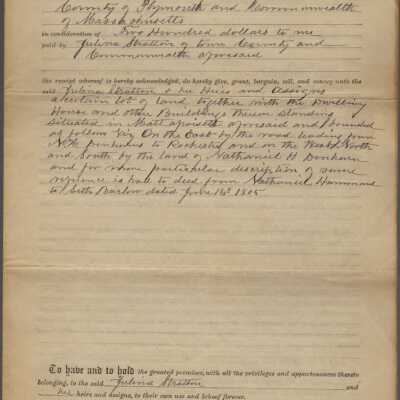 County of Plymouth and Commonwealth
of Massachusetts
in consideration of Five Hundred dollars to me
paid by Julina Stratton of town County and
Commonwealth aforesaid
the receipt whereof is hereby acknowledged, do hereby give, grant, bargain, sell, and convey unto the
said Julina Stratton & her Heirs and Assigns
a certain lot of land, together with the Dwelling
House and other Buildings thereon standing
situated in aforesaid and bounded
as follow viz On the East by the road leading from
to Rochester and on the West North
and South by the land of Nathaniel H
and for more particular description of same
reference is had to deed from Nathaniel Hammond
to Seth Barlow dated June 1805.
To have and to hold the granted premises, with all the privileges and appurtenances thereto
belonging, to the said Julina Stratton and
her heirs and assigns, to their own use and behoof forever.